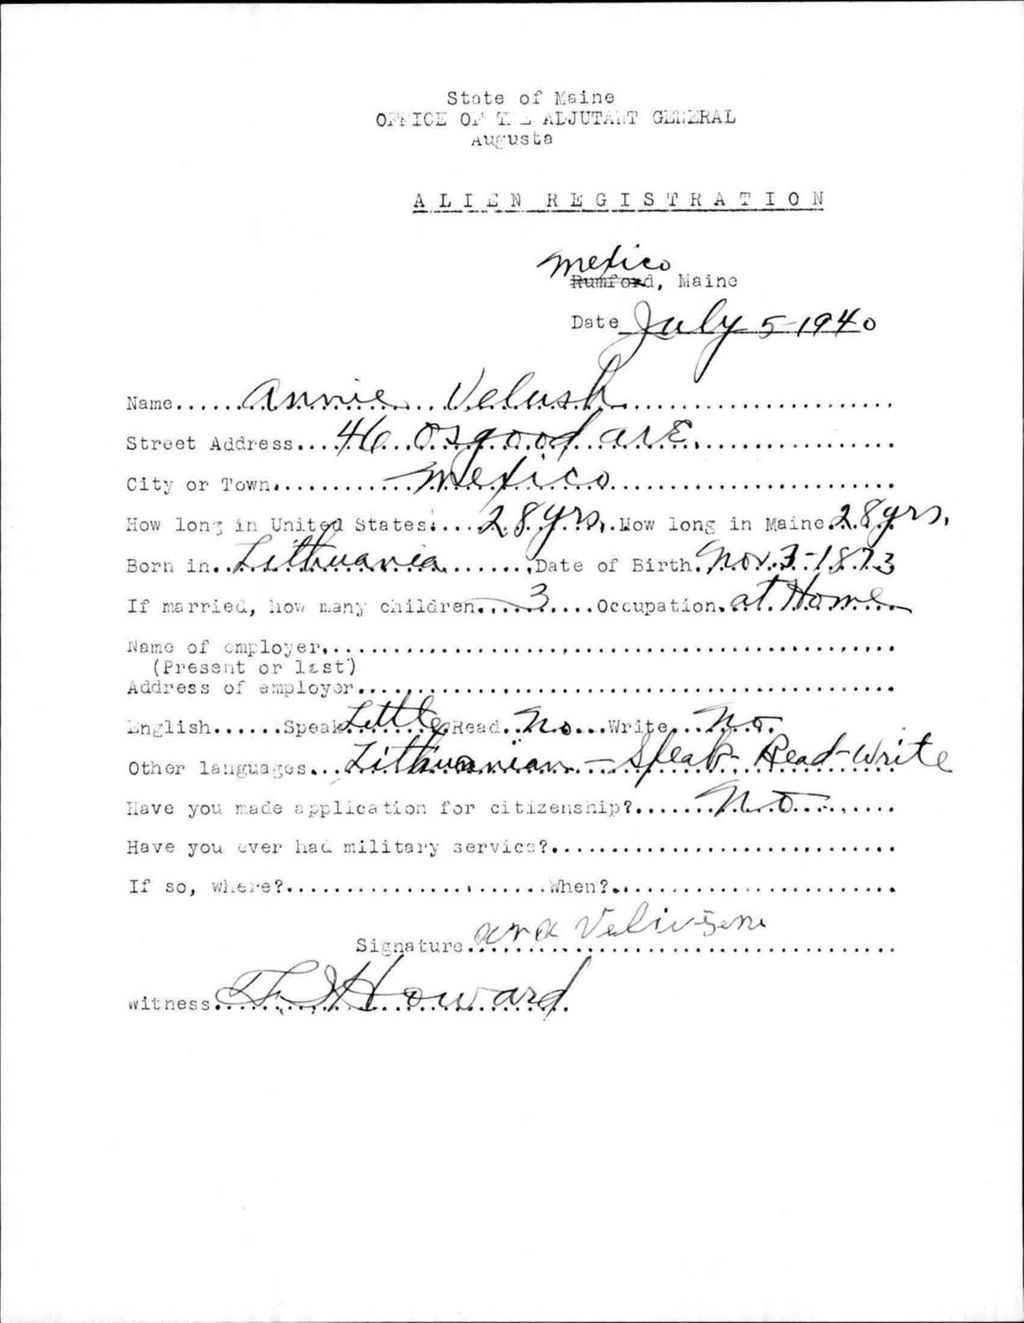 State of Maine
OFFICE OF THE ADJUTANT GENERAL
Augusta
ALIEN REGISTRATION
Mexico
Rumford, Maine
Date July 5-1940
Name.....Annie Velush.....
Street Address....46 Osgood ave.....
City or Town..........Mexico.....
How long in United States.....28 yrs..How long in Maine.28 yrs.
Born in..Lithuania.......Date of Birth.Nov.3-1873
If married, how many children.....3....Occupation.at Home
Name of employer.....
(Present or last)
Address of employer.....
English......Speak Little Read..No...Write..No.
Other languages...Lithuanian - Speak-Read-Write
Have you made application for citizenship?......No.....
Have you ever had military service?.....
If so, where?.....When?.....
Signature
Witness Howard